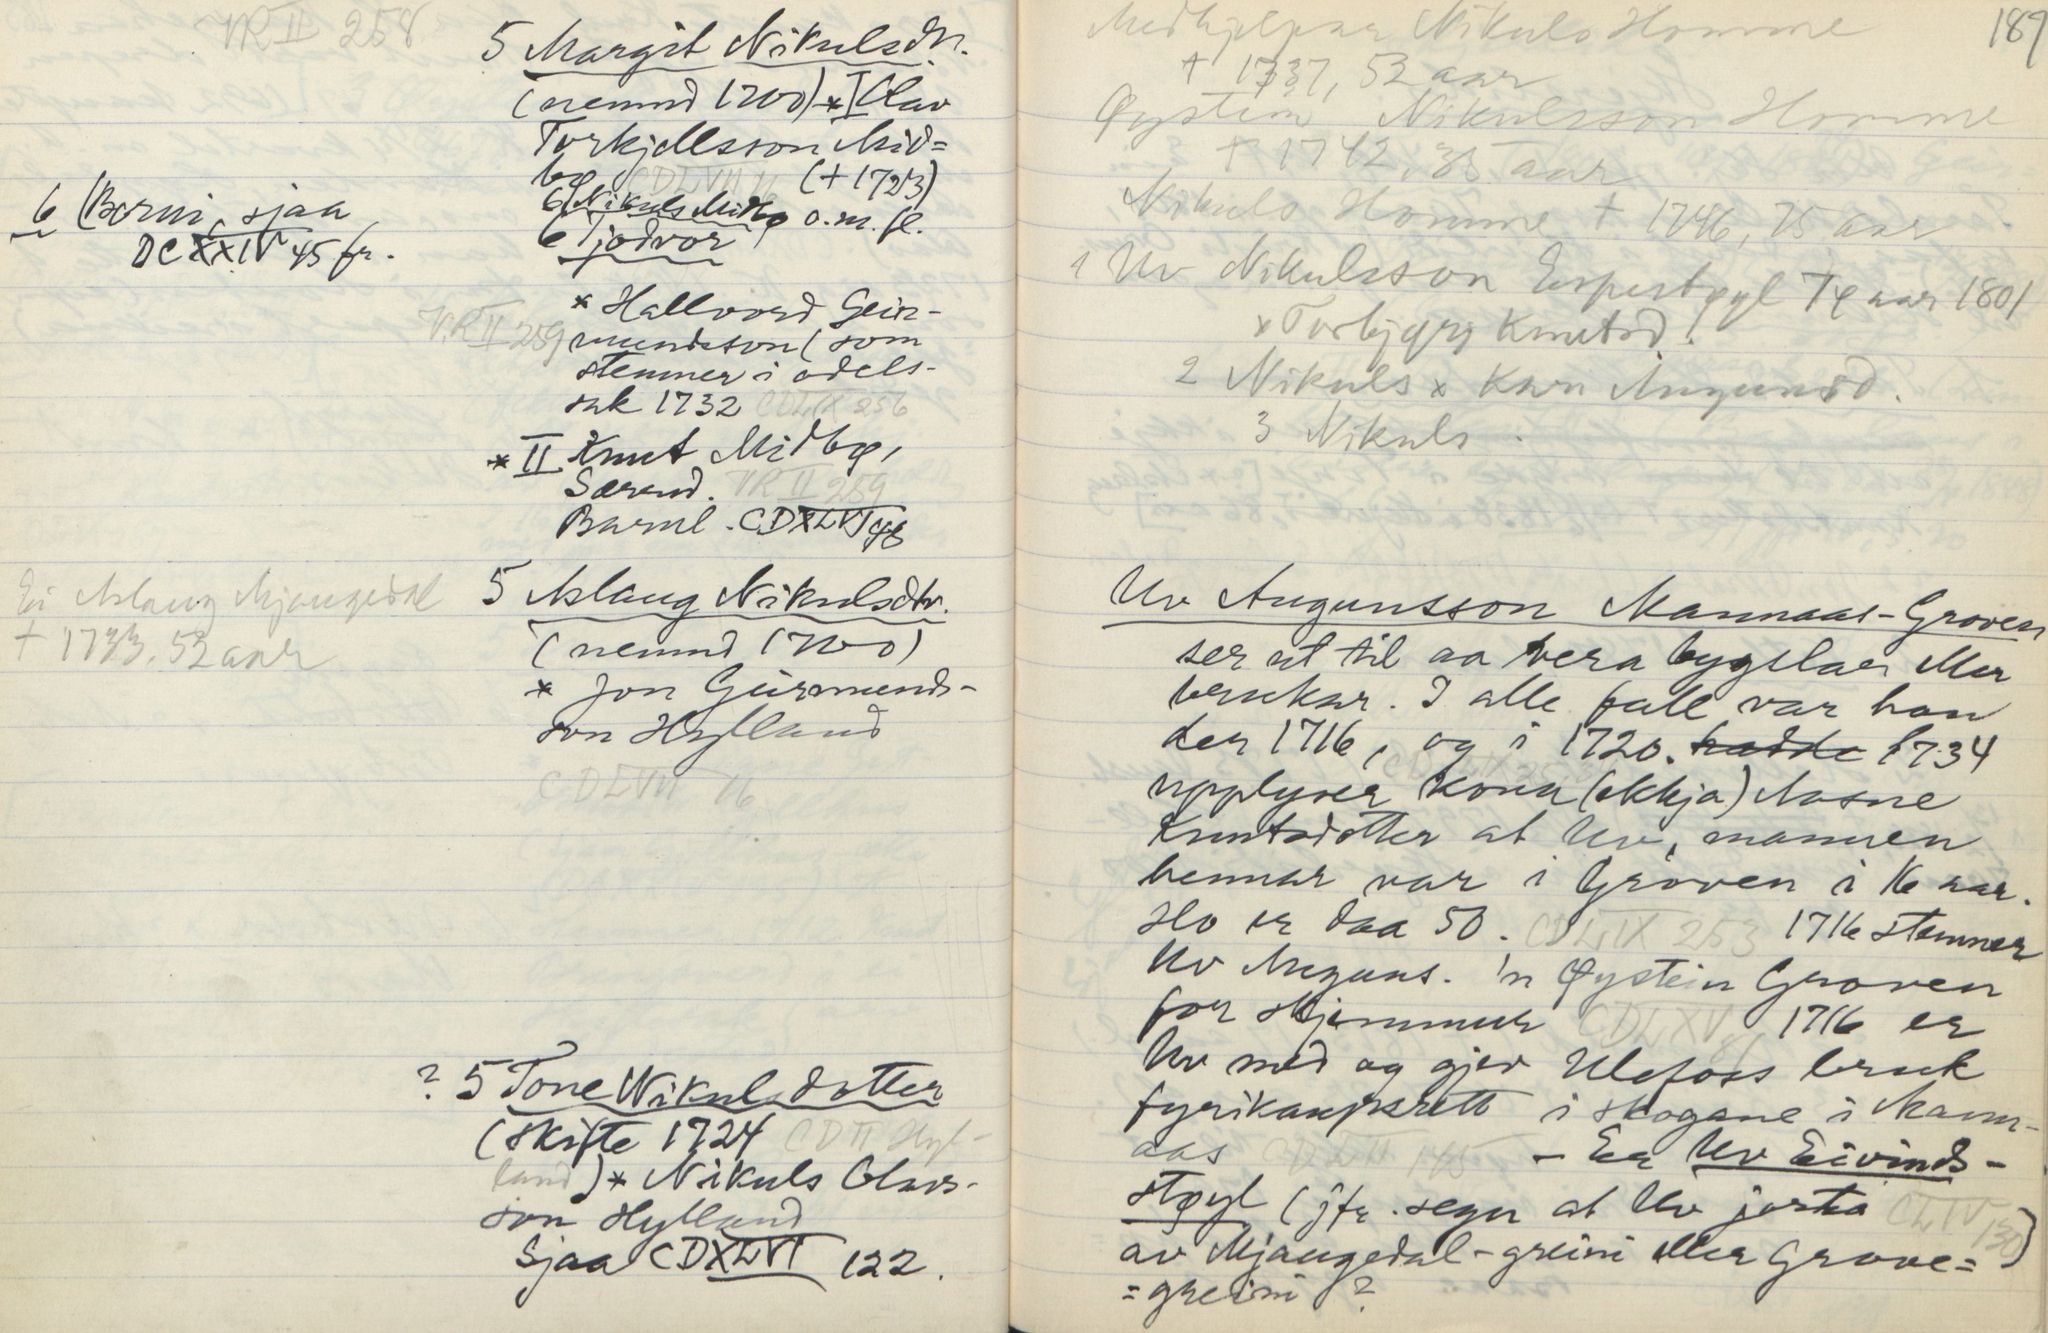 VR II 258
5 Margit Nikulsdtr.
(nemnd 1700) * I Olav
Torkjellsson Mid=
bø CDLVII 16 (+ 1723)
6 (Nikuls Midbø o.m.fl.
6 Tjodvor
6 (Borni, sjaa
DCXXIV 45 fr.
* Hallvord Geir-
VR II 259 mundsson (som
stemner i odels-
sak 1732 CDLIX 256
* II Knut Midbø,
Særend. VR II 259
Barnl. CDXLVI 98
Ei Aslaug Mjaugedal
+ 1733, 52 aar
5 Aslaug Nikulsdtr.
(nemnd 1700)
* Jon Geirmunds-
son Hylland
CDLVII 16
? 5 Tone Nikulsdotter
(skifte 1724 CDII Hyl-
land) * Nikuls Olavs-
son Hylland
Sjaa CDXLVI 122.
189
Medhjelpar Nikuls Homme
+ 1737, 52 aar
Øystein Nikulsson Homme
+ 1742, 35 aar
Nikuls Homme + 1746, 75 aar
1 Uv Nikulsson Espestøyl 79 aar 1801
x Torbjørg Knutsd.
2 Nikuls x Kari Augunsd.
3 Nikuls.
Uv Augunsson Mannaas-Groven
ser ut til aa vera bygslar eller
brukar. I alle fall var han
der 1716, og i 1720. hadde 1734
upplyser kona (ekkja) Aasne
Knutsdotter at Uv, mannen
hennar var i Groven i 16 aar.
Ho er daa 50. CDLIX 253 1716 stemner
Uv Auguns. 'n Øystein Groven
for skjemmur CDLXV 81 1716 er
Uv med og gjev Ulefoss bruk
fyrikaupsrett i skogane i Mann-
aas CDLII 145 - Er Uv Eivinds-
støyl (jfr. segn at Uv jorta CLIV 130)
av Mjaugedal-greini eller Grove=
=greini?